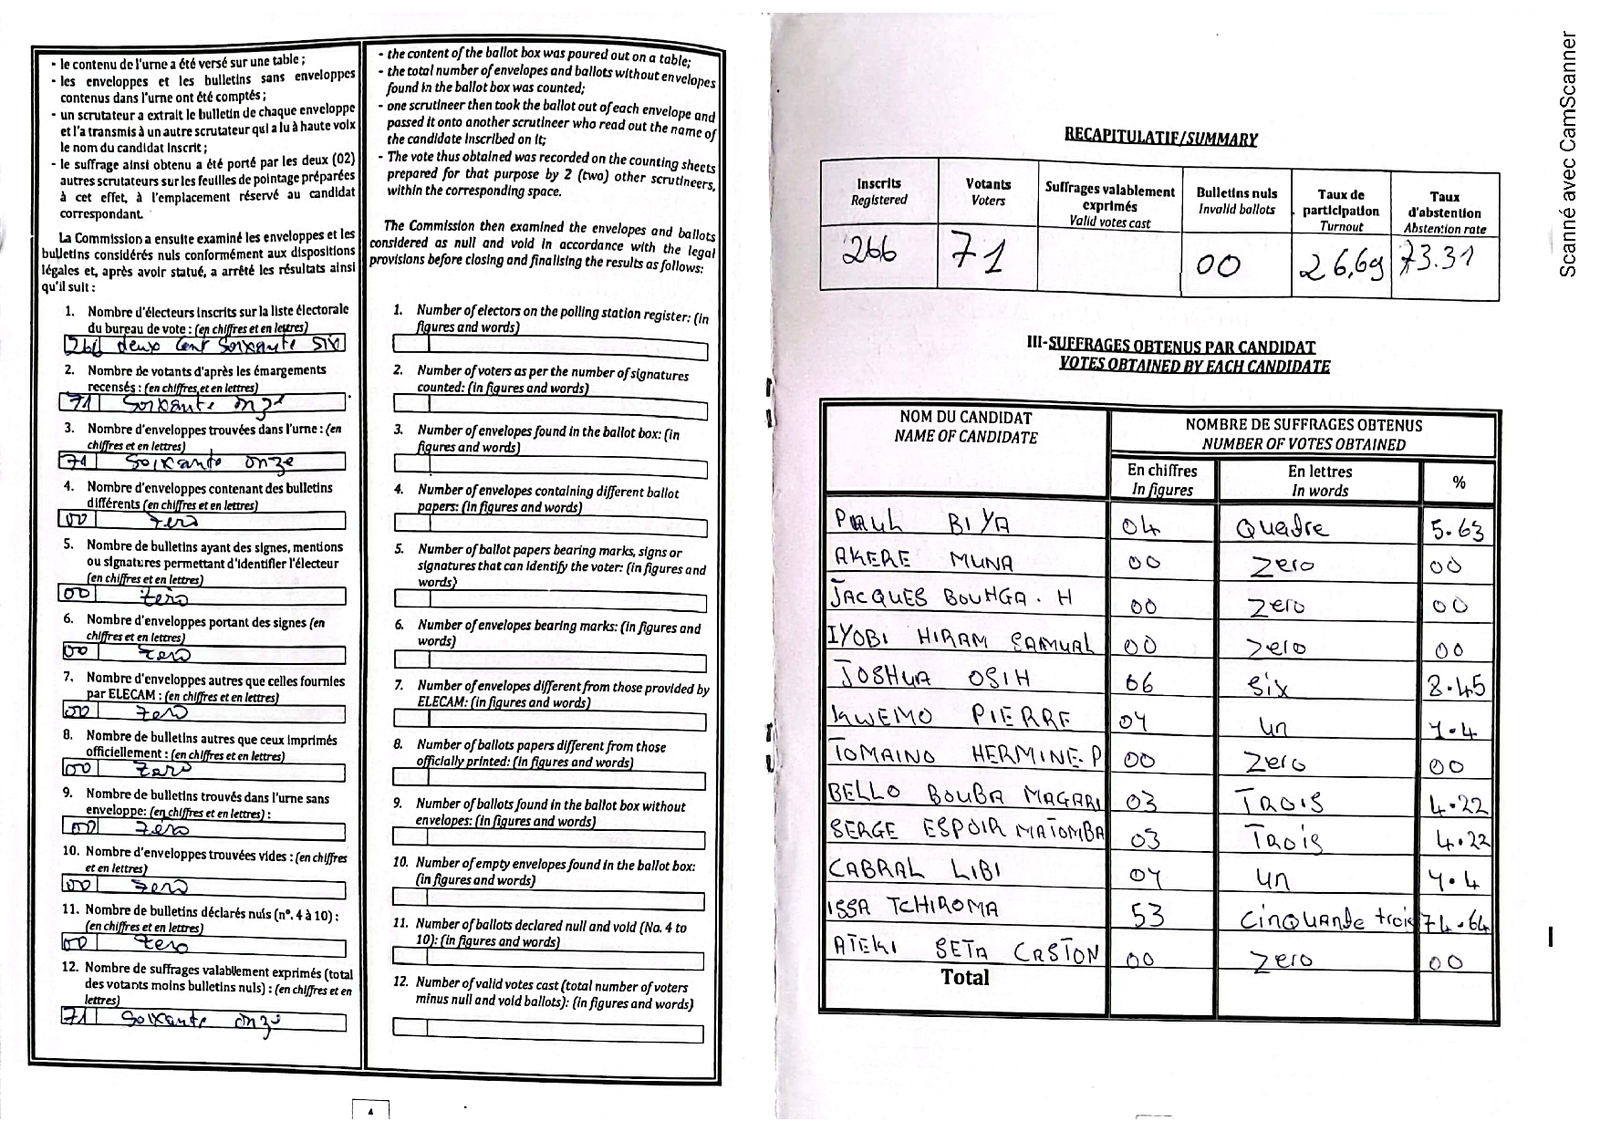 - le contenu de l'urne a été versé sur une table ;
- les enveloppes et les bulletins sans enveloppes
contenus dans l'urne ont été comptés ;
- un scrutateur a extrait le bulletin de chaque enveloppe
et l'a transmis à un autre scrutateur qui a lu à haute voix
le nom du candidat inscrit ;
- le suffrage ainsi obtenu a été porté par les deux (02)
autres scrutateurs sur les feuilles de pointage préparées
à cet effet, à l'emplacement réservé au candidat
correspondant.
La Commission a ensuite examiné les enveloppes et les
bulletins considérés nuls conformément aux dispositions
légales et, après avoir statué, a arrêté les résultats ainsi
qu'il suit :
1. Nombre d'électeurs inscrits sur la liste électorale
du bureau de vote : (en chiffres et en lettres)
266 deux cent soixante six
2. Nombre de votants d'après les émargements
recensés : (en chiffres et en lettres)
71 Soixante onze
3. Nombre d'enveloppes trouvées dans l'urne : (en
chiffres et en lettres)
71 Soixante onze
4. Nombre d'enveloppes contenant des bulletins
différents (en chiffres et en lettres)
00 zero
5. Nombre de bulletins ayant des signes, mentions
ou signatures permettant d'identifier l'électeur
(en chiffres et en lettres)
00 zero
6. Nombre d'enveloppes portant des signes (en
chiffres et en lettres)
00 zero
7. Nombre d'enveloppes autres que celles fournies
par ELECAM : (en chiffres et en lettres)
00 zero
8. Nombre de bulletins autres que ceux imprimés
officiellement : (en chiffres et en lettres)
00 zero
9. Nombre de bulletins trouvés dans l'urne sans
enveloppe: (en chiffres et en lettres) :
00 zero
10. Nombre d'enveloppes trouvées vides : (en chiffres
et en lettres)
00 zero
11. Nombre de bulletins déclarés nuls (n°. 4 à 10) :
(en chiffres et en lettres)
00 zero
12. Nombre de suffrages valablement exprimés (total
des votants moins bulletins nuls) : (en chiffres et en
lettres)
71 Soixante onze
- the content of the ballot box was poured out on a table;
- the total number of envelopes and ballots without envelopes
found in the ballot box was counted;
- one scrutineer then took the ballot out of each envelope and
passed it onto another scrutineer who read out the name of
the candidate inscribed on it;
- The vote thus obtained was recorded on the counting sheets
prepared for that purpose by 2 (two) other scrutineers,
within the corresponding space.
The Commission then examined the envelopes and ballots
considered as null and void in accordance with the legal
provisions before closing and finalising the results as follows:
1. Number of electors on the polling station register: (in
figures and words)
2. Number of voters as per the number of signatures
counted: (in figures and words)
3. Number of envelopes found in the ballot box: (in
figures and words)
4. Number of envelopes containing different ballot
papers: (in figures and words)
5. Number of ballot papers bearing marks, signs or
signatures that can identify the voter: (in figures and
words)
6. Number of envelopes bearing marks: (in figures and
words)
7. Number of envelopes different from those provided by
ELECAM: (in figures and words)
8. Number of ballots papers different from those
officially printed: (in figures and words)
9. Number of ballots found in the ballot box without
envelopes: (in figures and words)
10. Number of empty envelopes found in the ballot box:
(in figures and words)
11. Number of ballots declared null and void (No. 4 to
10): (in figures and words)
12. Number of valid votes cast (total number of voters
minus null and void ballots): (in figures and words)
4
RECAPITULATIF/SUMMARY
Inscrits Registered
Votants Voters
Suffrages valablement exprimés Valid votes cast
Bulletins nuls Invalid ballots
Taux de participation Turnout
Taux d'abstention Abstention rate
266 71 00 26,69 73.31
III-SUFFRAGES OBTENUS PAR CANDIDAT
VOTES OBTAINED BY EACH CANDIDATE
NOM DU CANDIDAT NOMBRE DE SUFFRAGES OBTENUS
NAME OF CANDIDATE NUMBER OF VOTES OBTAINED
En chiffres En lettres %
In figures In words
PAUL BIYA 04 Quadre 5.63
AKERE MUNA 00 Zero 00
JACQUES BOUHGA. H 00 Zero 00
IYOBI HIRAM SAMUAL 00 Zero 00
JOSHUA OSIH 06 Six 8.45
KWEMO PIERRE 01 un 1.4
TOMAINO HERMINE.P 00 Zero 00
BELLO BOUBA MAGARI 03 TROIS 4.22
SERGE ESPOIR MATOMBA 03 TROIS 4.22
CABRAL LIBI 01 un 1.4
ISSA TCHIROMA 53 Cinquante trois 74.64
ATEKI SETA CASTON 00 Zero 00
Total
Scanné avec CamScanner